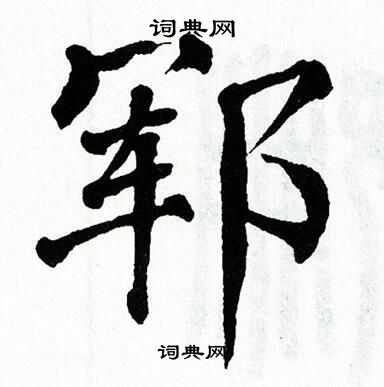 词典网
郓
词典网